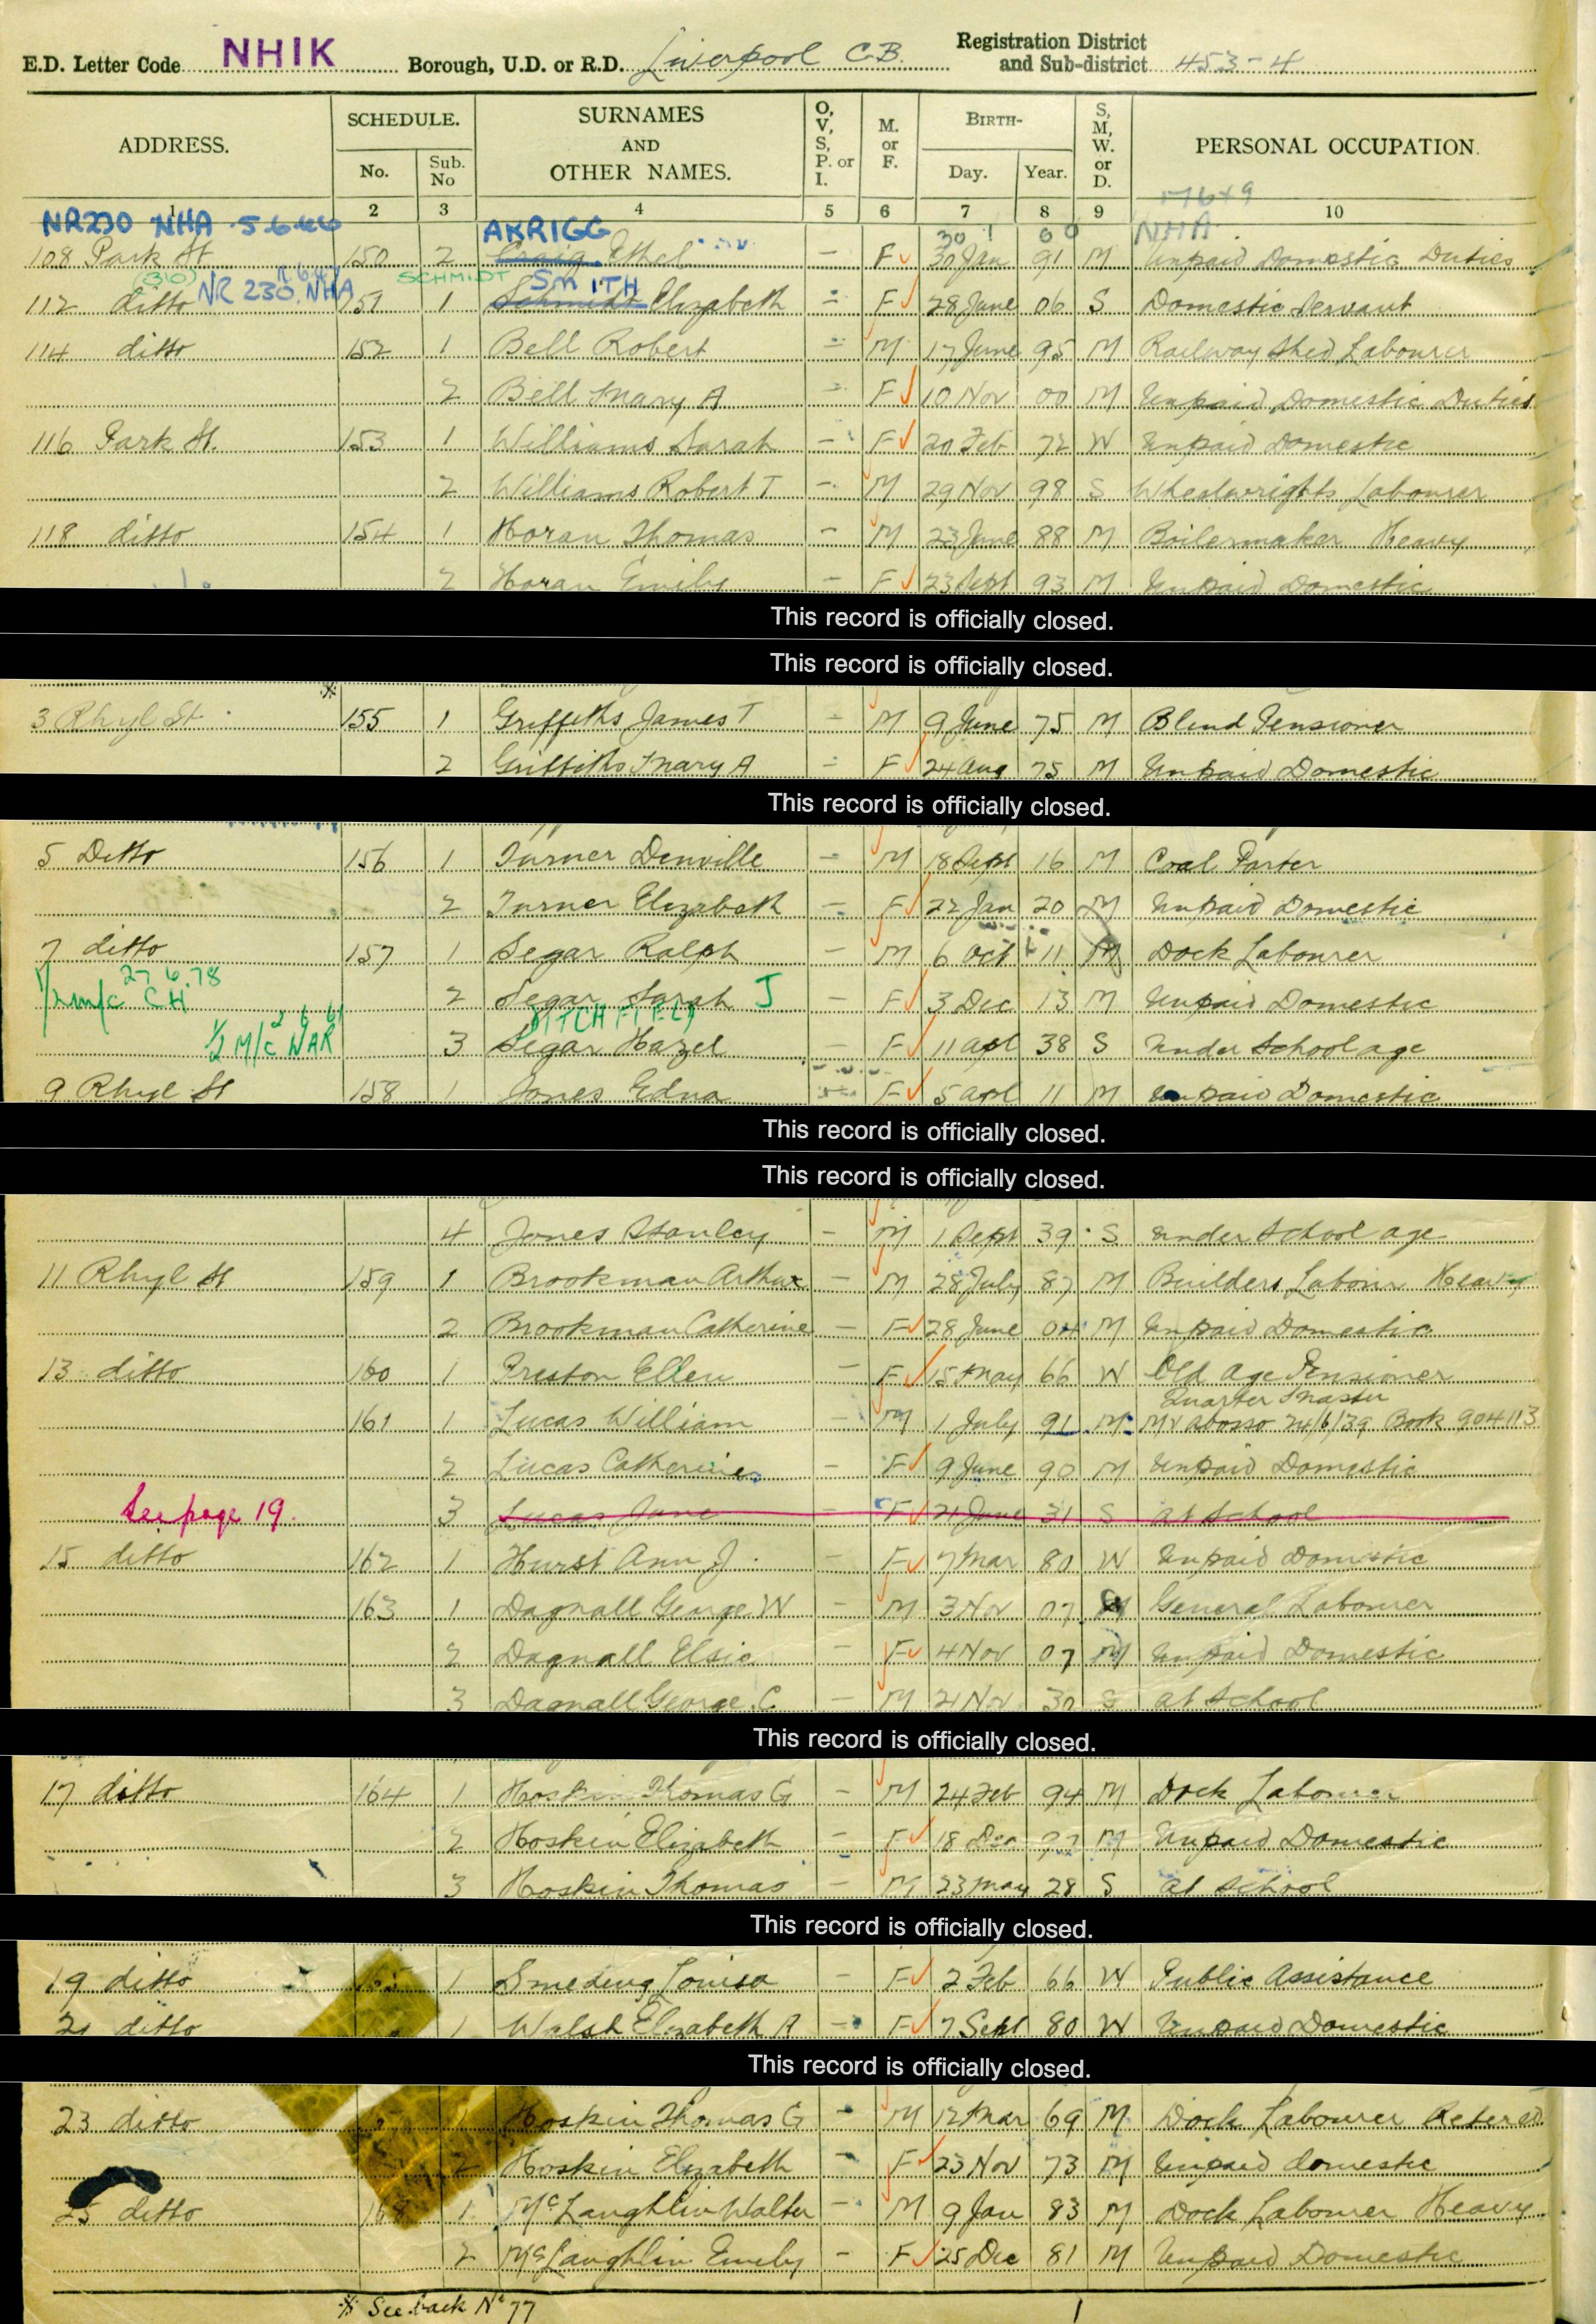 E.D. Letter Code NHIK Borough, U.D. or R.D. Liverpool C.B. Registration District and Sub-district 453-4
ADDRESS. SCHEDULE. No. Sub. No SURNAMES AND OTHER NAMES. O, V, S, P. or I. M. or F. BIRTH- Day. Year. S, M, W. or D. PERSONAL OCCUPATION.
1 2 3 4 5 6 7 8 9 10
NR230 NHA 5.6.46 AKRIGG 30 1 00 NHA
108 Park St 150 2 Craig Ethel - F 30 Jan 91 M Unpaid Domestic Duties
NR 230 NHA SCHMIDT SMITH
112 ditto 151 1 Schmidt Elizabeth - F 28 June 06 S Domestic Servant
114 ditto 152 1 Bell Robert - M 17 June 95 M Railway Shed Labourer
2 Bell Mary A - F 10 Nov 00 M Unpaid Domestic Duties
116 Park St. 153 1 Williams Sarah - F 20 Feb 72 W Unpaid Domestic
2 Williams Robert T - M 29 Nov 98 S Wheelwrights Labourer
118 ditto 154 1 Horan Thomas - M 23 June 88 M Boilermaker Heavy
2 Horan Emily - F 23 Sept 93 M Unpaid Domestic
This record is officially closed.
This record is officially closed.
3 Rhyl St 155 1 Griffiths James T - M 9 June 75 M Blind Pensioner
2 Griffiths Mary A - F 24 Aug 75 M Unpaid Domestic
This record is officially closed.
5 Ditto 156 1 Turner Denville - M 18 Sept 16 M Coal Porter
2 Turner Elizabeth - F 22 Jan 20 M Unpaid Domestic
7 ditto 157 1 Segar Ralph - M 6 Oct 11 M Dock Labourer
27.6.78
CH 2 Segar Sarah J - F 3 Dec 13 M Unpaid Domestic
LITCHFIELD
1/2 M/C NAR 3 Segar Hazel - F 11 Apl 38 S Under School age
9 Rhyl St 158 1 Jones Edna - F 5 Apl 11 M Unpaid Domestic
This record is officially closed.
This record is officially closed.
4 Jones Stanley - M 1 Sept 39 S Under School age
11 Rhyl St 159 1 Brookman Arthur - M 28 July 87 M Builders Labour Heavy
2 Brookman Catherine - F 28 June 04 M Unpaid Domestic
13 ditto 160 1 Preston Ellen - F 15 May 66 W Old Age Pensioner
Quarter Master
161 1 Lucas William - M 1 July 91 M MV Abosso 24/6/39 Book 904113
2 Lucas Catherine - F 9 June 90 M Unpaid Domestic
See page 19. 3 Lucas Jane - F 21 June 31 S at School
15 ditto 162 1 Hurst Ann J. - F 7 Mar 80 W Unpaid Domestic
163 1 Dagnall George W - M 3 Nov 07 M General Labourer
2 Dagnall Elsie - F 4 Nov 07 M Unpaid Domestic
3 Dagnall George C - M 21 Nov 30 S at School
This record is officially closed.
17 ditto 164 1 Hoskin Thomas G - M 24 Feb 94 M Dock Labourer
2 Hoskin Elizabeth - F 18 Dec 97 M Unpaid Domestic
3 Hoskin Thomas - M 23 May 28 S at School
This record is officially closed.
19 ditto 1 Smedeng Louisa - F 2 Feb 66 W Public Assistance
21 ditto 1 Walsh Elizabeth A - F 7 Sept 80 W Unpaid Domestic
This record is officially closed.
23 ditto 1 Hoskin Thomas G - M 12 Mar 69 M Dock Labourer Retired
2 Hoskin Elizabeth - F 23 Nov 73 M Unpaid domestic
25 ditto 168 1 McLaughlin Walter - M 9 Jan 83 M Dock Labourer Heavy
2 McLaughlin Emily - F 25 Dec 81 M Unpaid Domestic
* See back No 77 1